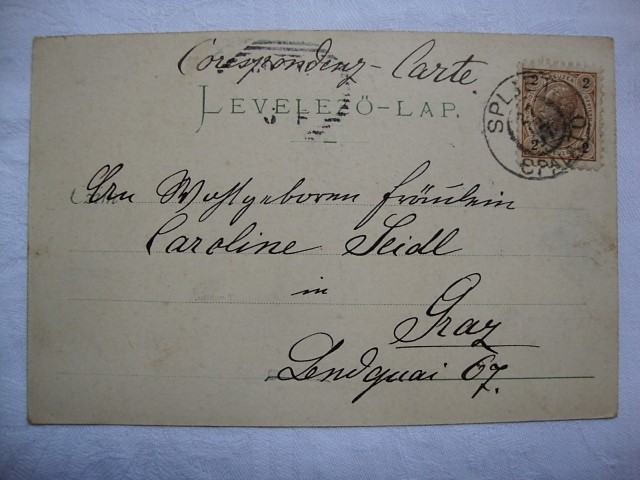 Corespondenz-Carte.
LEVELEZŐ-LAP.
2 2
2 2
SPLJET
SPALATO
Wohlgeboren Fräulein
Caroline Seidl
in
Graz
Lendquai 67.